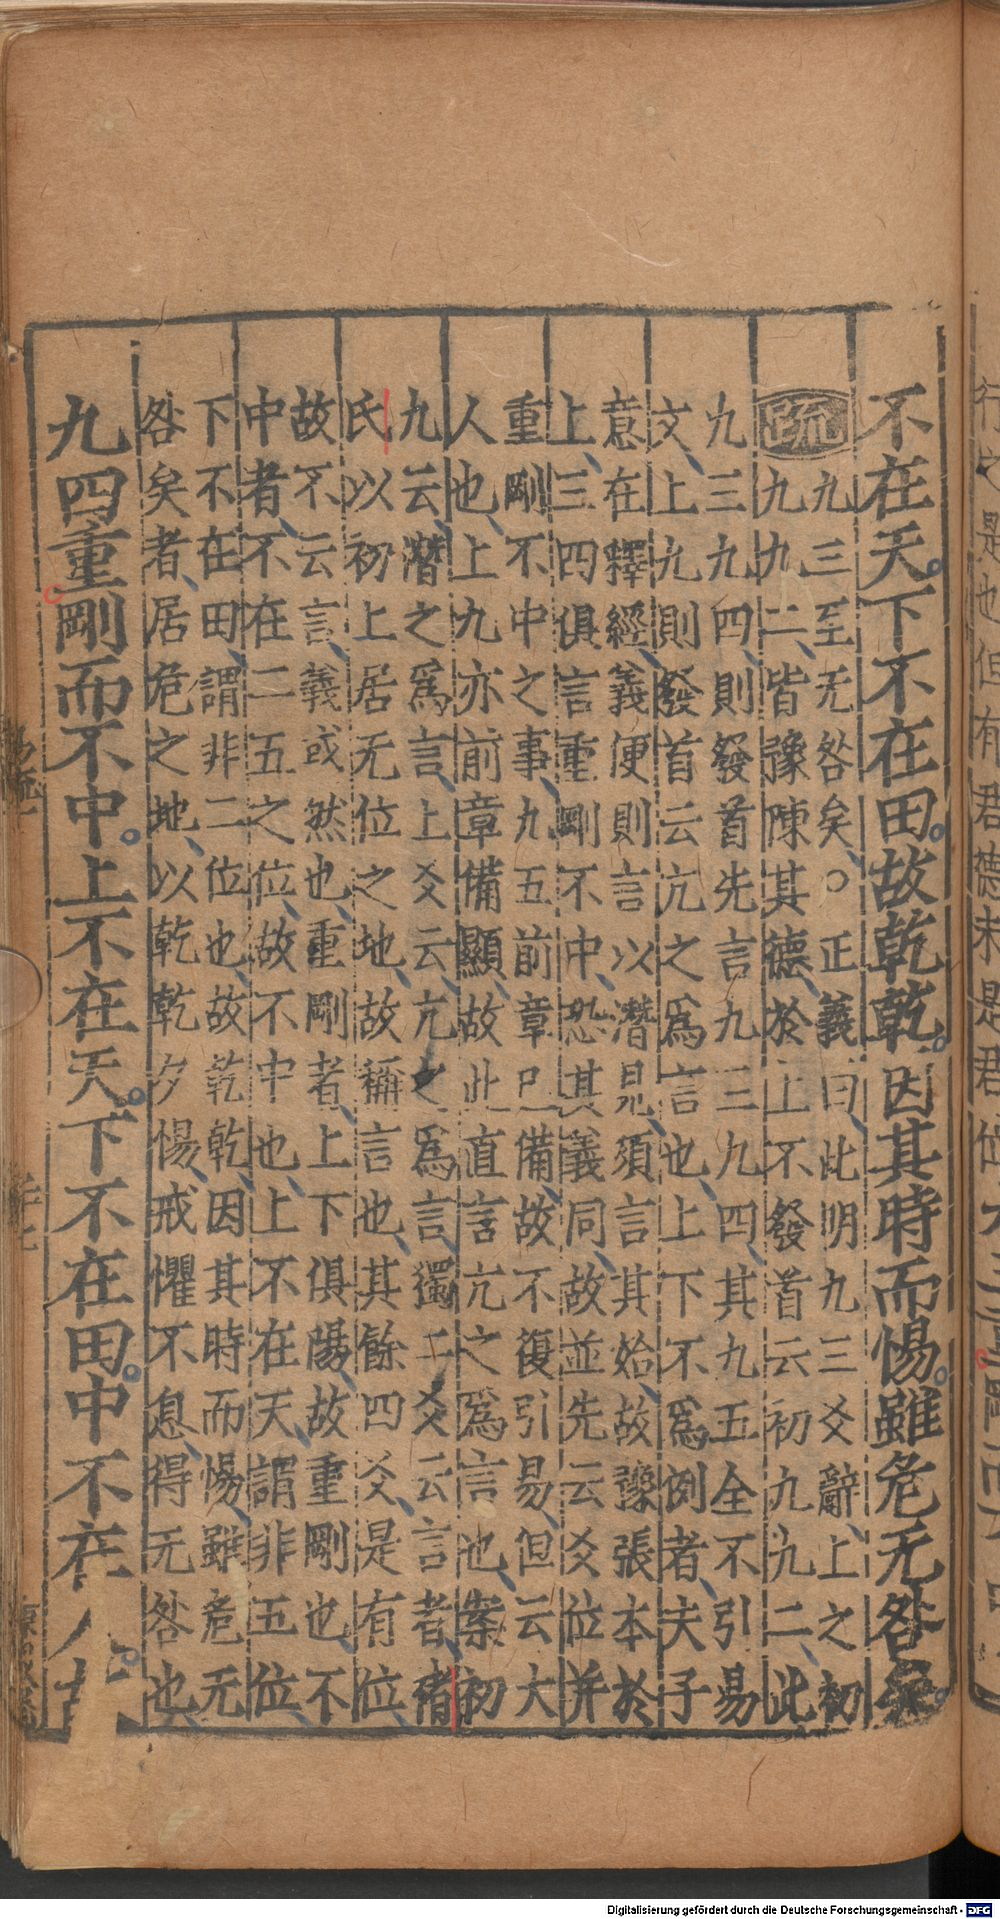 行之是也但有君德未是君位
不在天下不在田故乾乾因其時而惕雖危无咎矣
疏
九三至无咎矣○正義曰此明九三爻辭上之初
九九二皆豫陳其德於上不發首云初九九二此
九三九四則發首先言九三九四其九五全不引易
文上九則發首云亢之爲言也上下不爲例者夫子
意在釋經義便則言以潛見須言其始故豫張本於
上三四俱言重剛不中恐其義同故並先云爻位并
重剛不中之事九五前章已備故不復引易但云大
人也上九亦前章備顯故此直言亢之爲言也案初
九云潛之爲言上爻云亢之爲言獨二爻云言者褚
氏以初上居无位之地故稱言也其餘四爻是有位
故不云言義或然也重剛者上下俱陽故重剛也不
中者不在二五之位故不中也上不在天謂非五位
下不在田謂非二位也故乾乾因其時而惕雖危无
咎矣者居危之地以乾乾夕惕戒懼不息得无咎也
九四重剛而不中上不在天下不在田中不在人
Digitalisierung gefördert durch die Deutsche Forschungsgemeinschaft - DFG